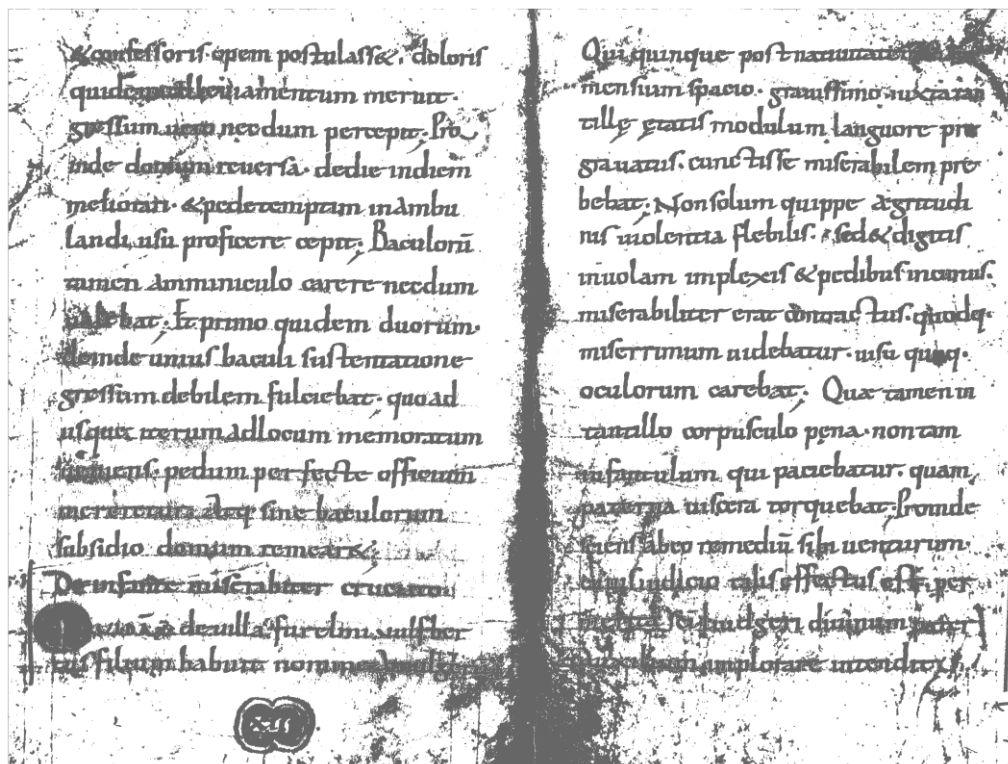 & confessoris opem postulass&. doloris
quidem alleuiamentum meruit.
gressum uero necdum percepit. Pro
inde domum reuersa. dedie indiem
meliorari. & pedetemptim inambu
landi usu proficere cepit. Baculorū
tamen amminiculo carere necdum
ualebat. Et primo quidem duorum.
deinde unius baculi sustentatione
gressum debilem fulciebat. quoad
usque iterum adlocum memoratum
ueniens. pedum perfecte officium
mereretur. atq; sine baculorum
subsidio domum remear&.
De infante miserabiliter cruciato.
de uilla furelmi uulfher
tus filium habuit nomine
Qui quinque post natiuitatem
mensium spacio. grauissimo iuxta tan
tillę ętatis modulum languore pre
grauatus. cunctis se miserabilem pre
bebat. Non solum quippe ægritudi
nis uiolentia flebilis. sed & digitis
inuolam implexis & pedibus incuruis.
miserabiliter erat contractus. quodq;
miserrimum uidebatur. uisu quoq;
oculorum carebat. Quæ tamen in
tantillo corpusculo pęna. non tam
infantulum qui patiebatur. quam
paterna uiscera torquebat. Proinde
sciens abeo remediū sibi uenturum.
cuius iudicio talis effectus est. per
merita sci liudgeri diuinum pater
auxilium implorare intendit.